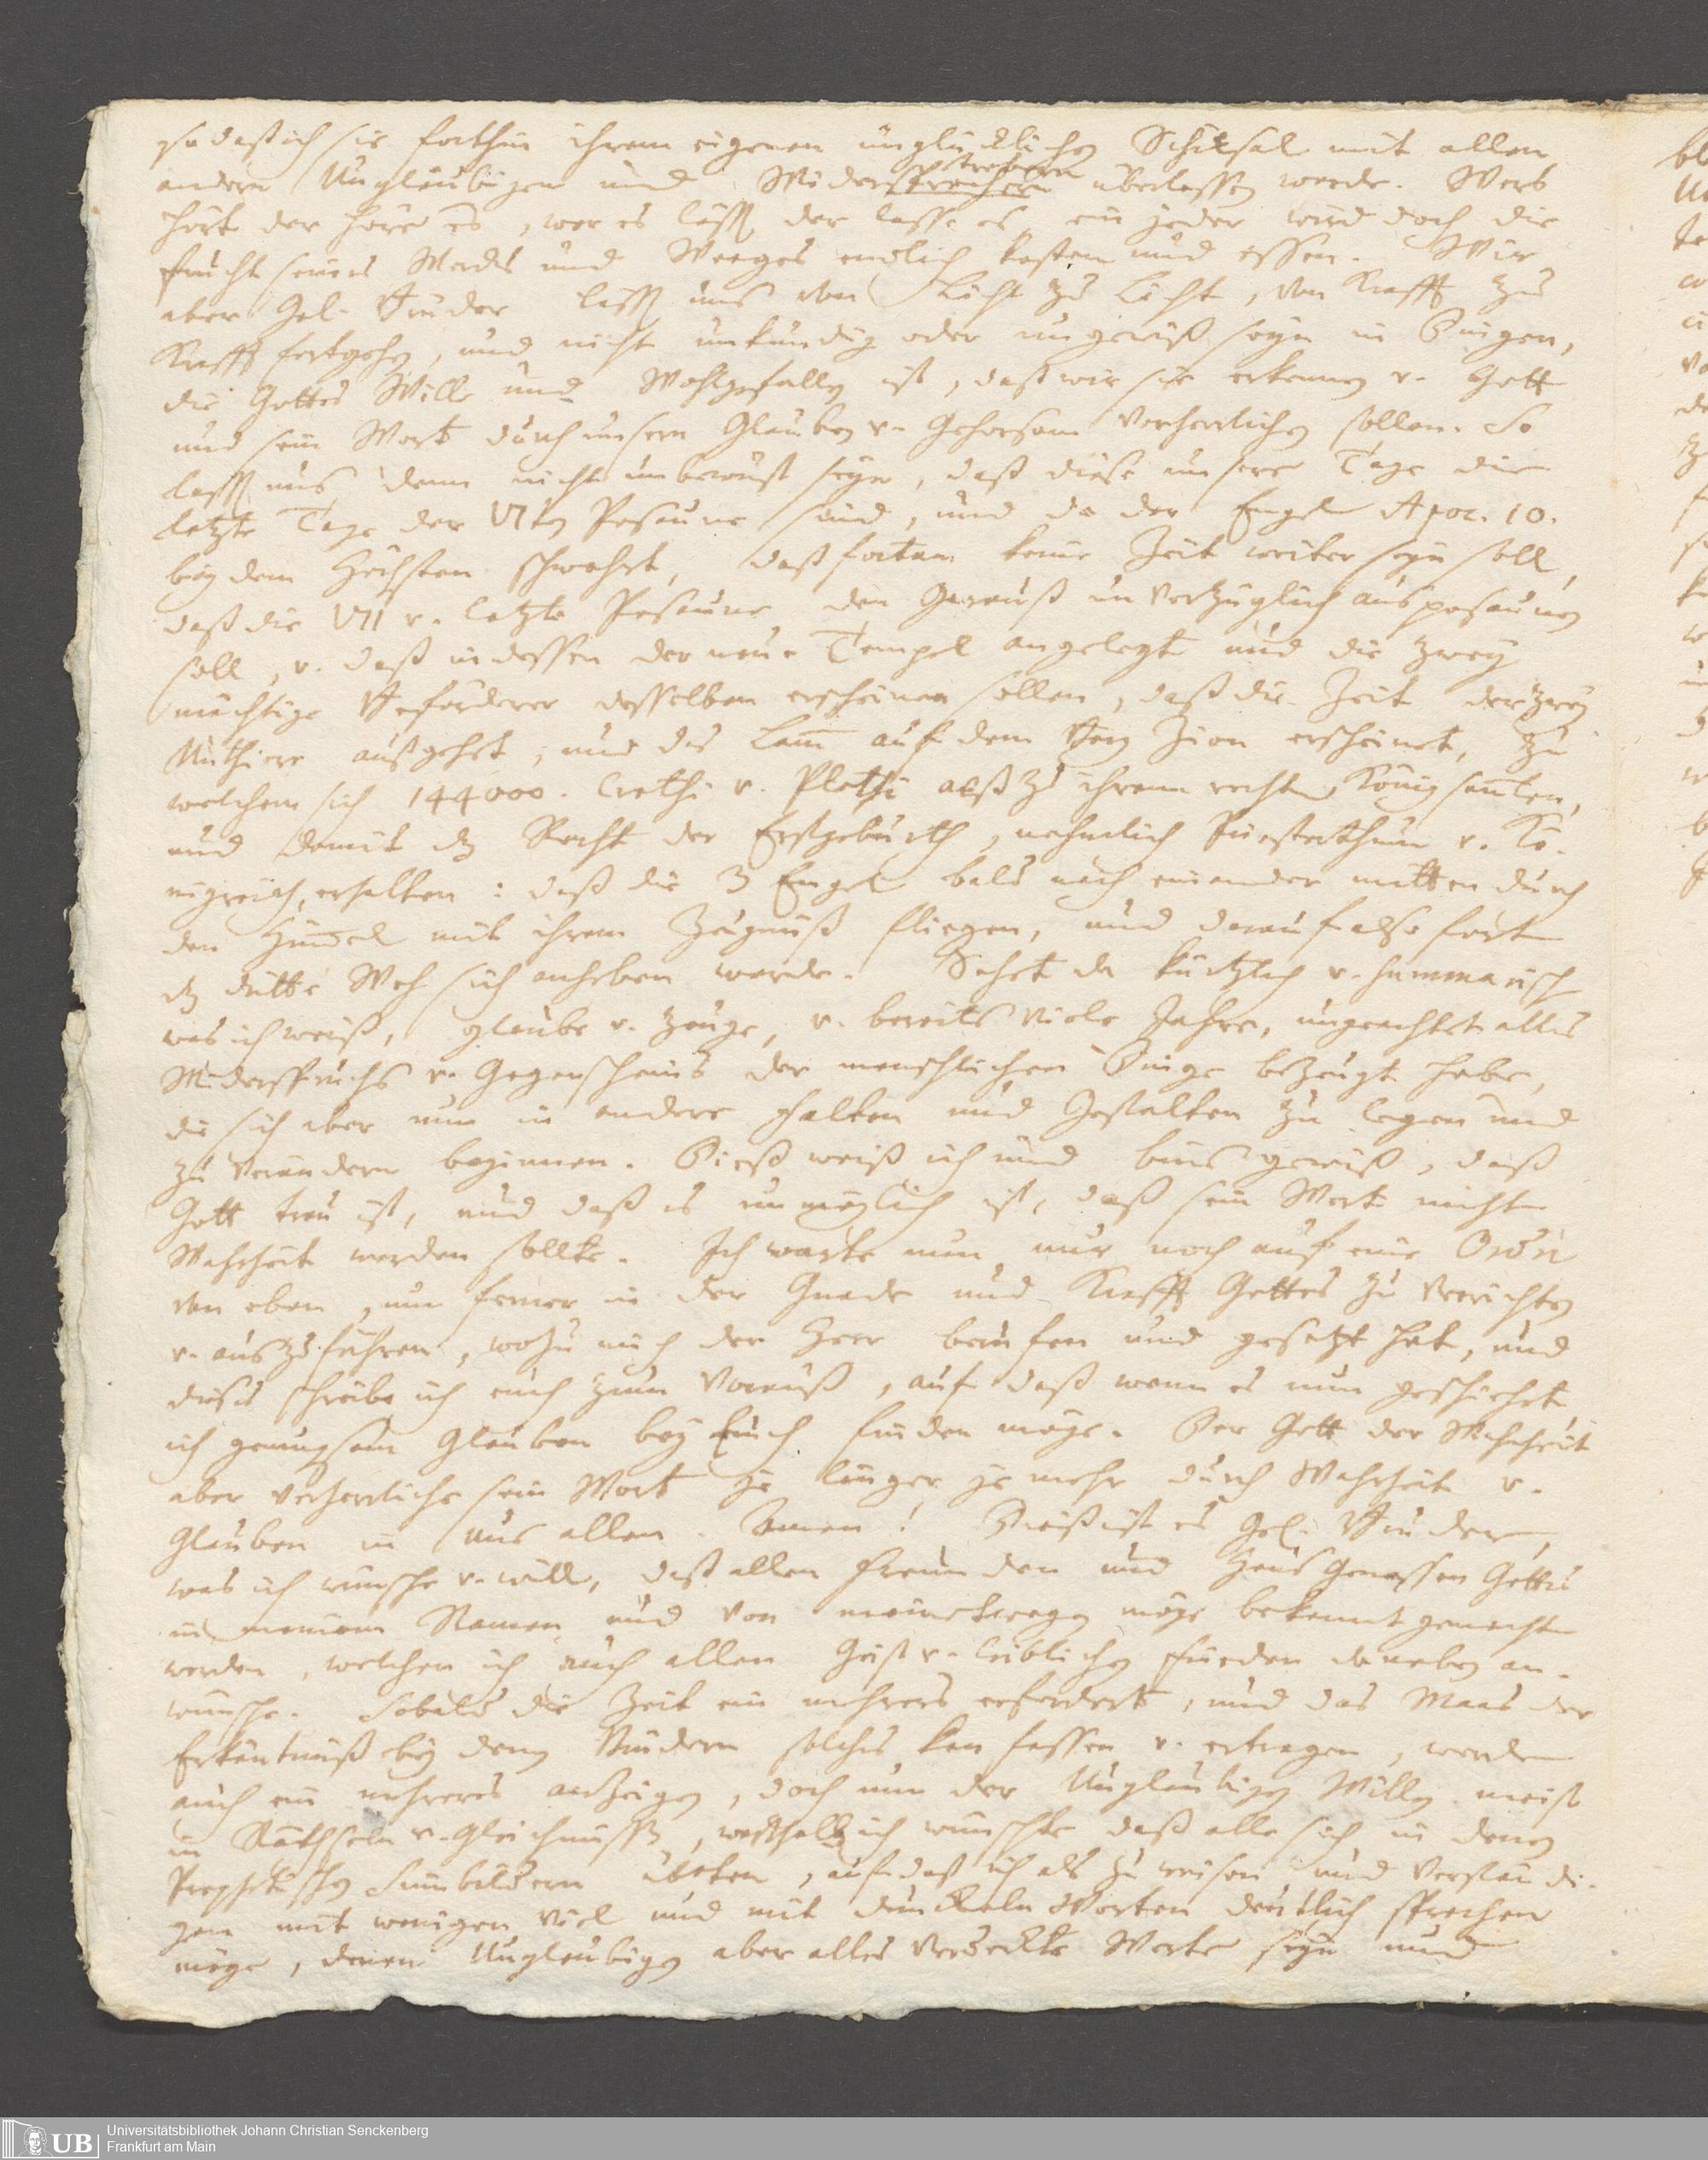 so daß ich sie forthin ihrem eigenen unglücklichen Schiksal mit allen
andern Ungläubigen und Widersprechern strebern überlassen werde. Wers
hört der höre es, wer es läßt der lasse es, ein jeder wird doch die
Frucht seines Werks und Weeges endlich kosten und essen. Wir
aber Gel. Brüder laßt uns von Licht zu Licht, von Krafft zu
Krafft fortgehen, und nicht unkundig oder ungewiß seyn in Dingen,
die Gottes Wille und Wohlgefallen ist, daß wir sie erkennen v. Gott
und sein Wort durch unsern Glauben v. Gehorsam verherrlichen sollen. So
lasst uns denn nicht unbewust seyn, daß diese unsere Tage die
letzte Tage der VIten Posaune sind, und da der Engel Apoc. 10.
bey dem Höchsten schwehrt, daß fortan keine Zeit weiter seyn soll,
daß die VII v. letzte Posaune den Garauß unverzüglich ausposaunen
soll, v. daß indessen der neue Tempel angelegt und die zwey
mächtige Beförderer desselben erscheinen sollen, daß die Zeit der zwey
Unthiere außgehet, und das Lam̄ auf dem Berg Zion erscheinet, zu
welchem sich 144000. Crethi v. Plethi alß zu ihrem rechten König samlen,
und damit dz Recht der Erstgeburth, nehmlich Priesterthum v. Kö-
nigreich, erhalten: daß die 3 Engel bald nach einander mitten durch
den Him̄el mit ihrem Zeugnuß fliegen, und darauf also fort
dz dritte Weh sich anheben werde. Sehet da kürtzlich v. summarisch
was ich weiß, glaube v. zeuge, v. bereits viele Jahre, ungeachtet alles
Widerspruchs v. Gegenscheins der menschlichen Dinge bezeugt habe,
die sich aber nun in andere Falten und Gestalten zu legen und
zu verändern beginnen. Dieß weiß ich und bins gewiß, daß
Gott treu ist, und daß es unmöglich ist, daß sein Wort nicht
Wahrheit werden sollte. Ich warte nun nur noch auf eine Ordre
von oben, um ferner in der Gnade und Krafft Gottes zu verrichten
v. auszuführen, wozu mich der Herr berufen und gesetzt hat, und
dieses schreibe ich euch zum Vorauß, auf daß wenn es nun geschiehet
ich genugsam Glauben bey Euch finden möge. Der Gott der Wahrheit
aber verherrliche sein Wort je länger je mehr durch Wahrheit v.
Glauben in uns allen. Amen! Dieß ist es Gel. Brüder,
was ich wünsche v. will, daß allen Freunden und Hausgenossen Gottes
in meinem Namen und von meinetwegen möge bekannt gemacht
werden, welchen ich auch allen Geist v. leiblichen Frieden daneben an-
wünsche. Sobald die Zeit ein mehrers erfordert, und das Maas der
Erkäntnuß bey denen Brüdern solches kan fassen v. ertragen, werde
auch ein mehreres anzeigen, doch um der Ungläubigen Willen meist
in Räthseln v. Gleichnussen, weßhalb ich wünschte daß alle sich in denen
Prophetischen Sinnbildern übeten, auf daß ich als zu weisen und Verständi-
gen mit wenigen viel und mit dunckeln Worten deutlich sprechen
möge, denen Ungläubigen aber alles verdeckte Worte seyn und
Universitätsbibliothek Johann Christian Senckenberg
Frankfurt am Main
UB